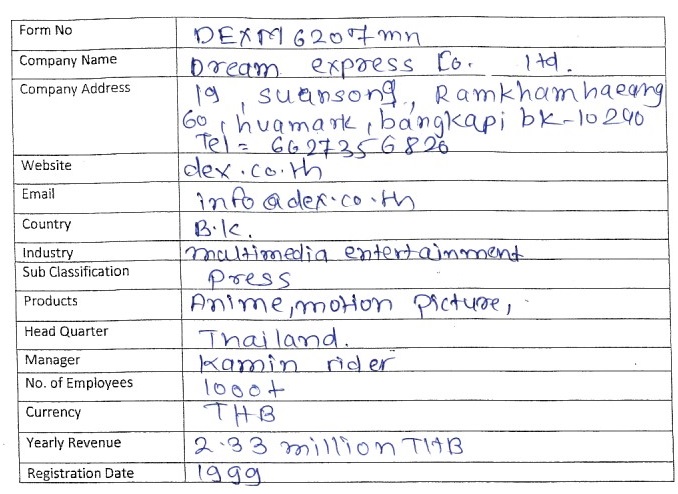 Form No DEXM6207mn
Company Name Dream express Co. Ltd.
Company Address 19, suansong, Ramkhamhaeang
60, huamark, bangkapi bk-10240
Tel = 6627356826
Website dex.co.th
Email info@dex.co.th
Country B.k.
Industry multimedia entertainment
Sub Classification Press
Products Anime, motion picture,
Head Quarter Thailand.
Manager Kamin rider
No. of Employees 1000+
Currency THB
Yearly Revenue 2.33 million THB
Registration Date 1999